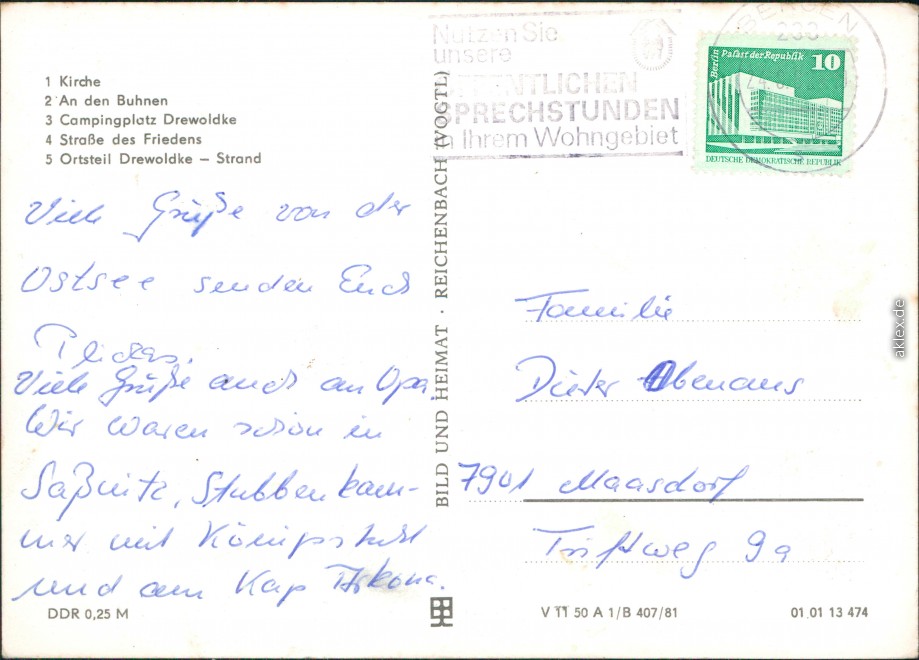 1 Kirche
2 An den Buhnen
3 Campingplatz Drewoldke
4 Straße des Friedens
5 Ortsteil Drewoldke – Strand
Viele Grüße von der
Ostsee senden Euch
Viele Grüße auch an Opa.
Wir waren schon in
Saßnitz, Stubbenkam-
mer mit Königsstuhl
und am Kap Arkona.
DDR 0,25 M
BILD UND HEIMAT · REICHENBACH (VOGTL)
Nutzen Sie
unsere
ÖFFENTLICHEN
SPRECHSTUNDEN
in Ihrem Wohngebiet
BERGEN
233
Berlin Palast der Republik 10
DEUTSCHE DEMOKRATISCHE REPUBLIK
Familie
Dieter
7901 Maasdorf
Triftweg 9a
V 11 50 A 1/B 407/81
01 01 13 474
aklex.de